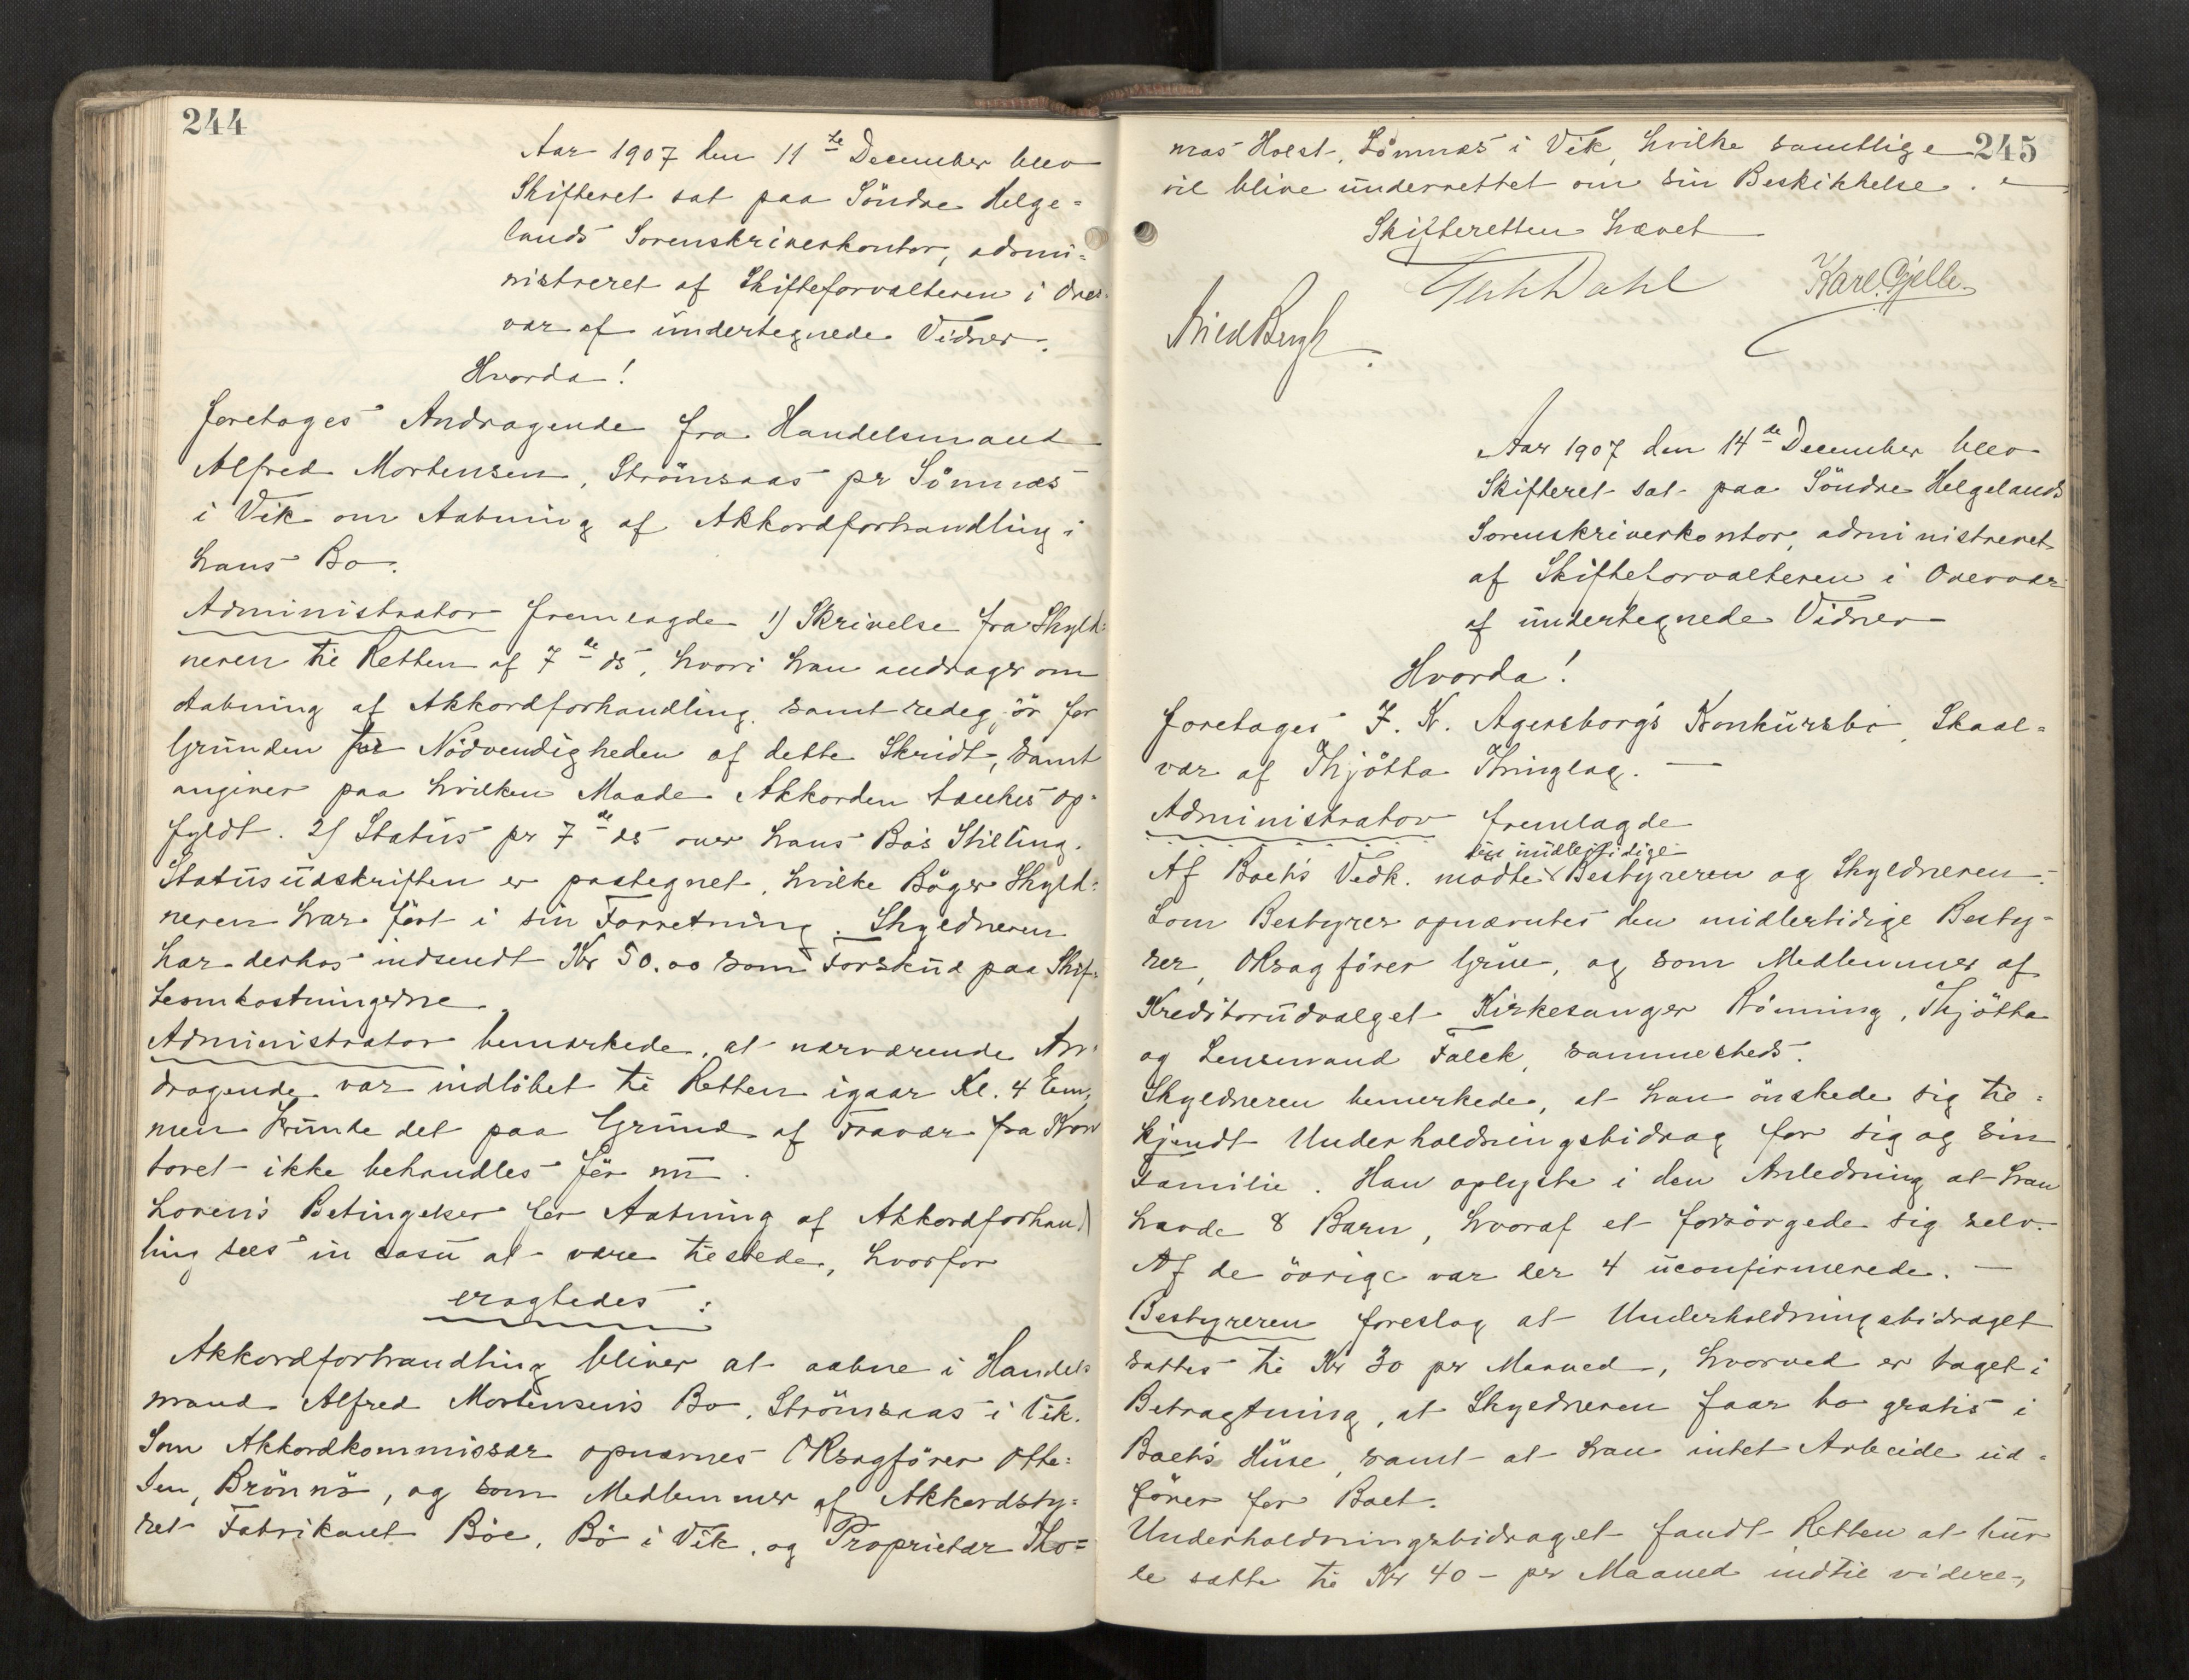 244
Aar 1907 den 11te December blev
Skifteret sat paa Söndre Helge=
lands Sorenskriverkontor, admi=
nistreret af Skifteforvalteren i Over-
vær af undertegnede Vidner.
Hvorda!
foretoges Andragende fra Handelsmand
Alfred Mortensen, Strömsaas pr Sömnæs
i Vik om Aabning af Akkordforhandling i
hans Bo.
Administrator fremlagde 1) Skrivelse fra Skyld=
neren til Retten af 7de ds, hvori han andrager om
Aabning af Akkordforhandling samt redegjör for
Grunden for Nödvendigheden af dette Skridt, samt
angiver paa hvilken Maade Akkorden tænkes op=
fyldt. 2) Status pr 7de ds over hans Bo's Stilling.
Statusudskriften er paategnet, hvilke Böger Skyld=
neren har fört i sin Forretning. Skyldneren
har derhos indsendt Kr 50.00 som Forskud paa Skif=
teomkostningerne.
Administrator bemærkede, at nærværende An=
dragende var indlöbet til Retten igaar Kl. 4 Em,
men kunde det paa Grund af Fravær fra Kon
toret ikke behandles för nu.
Lovens Betingelser for Aabning af Akkordforhand
ling sees in casu at være tilstede, hvorfor
eragtedes:
Akkordforhandling bliver at aabne i Handels
mand Alfred Mortensens Bo, Strömsaas i Vik.
Som Akkordkommissær opnævnes OKsagförer Otte=
sen, Brönnö, og som Medlemmer af Akkordsty=
ret Fabrikant Böe, Bö i Vik, og Proprietær Tho=
245
mas Holst, Sömnæs i Vik, hvilke samtlige
vil blive underrettet om sin Beskikkelse.
Skifteretten hævet
Dahl Karl Gjelle
Bergh
Aar 1907 den 14de December blev
Skifteret sat paa Söndre Helgelands
Sorenskriverkontor, administreret
af Skifteforvalteren i Overvær
af undertegnede Vidner
Hvorda!
foretoges J. K. Agersborg's Konkursbo, Skaal=
vær af Thjötta Thinglag. —
Administrator fremlagde
den midlertidige
Af Boets Vedk. mødte Bestyreren og Skyldneren.
Som Bestyrer opnævntes den midlertidige Besty=
rer, OKsagförer Grüe, og som Medlemmer af
Kreditorudvalget Kirkesanger Rönning, Thjötta
og Lensmand Falck, sammesteds.
Skyldneren bemerkede, at han önskede sig til=
kjendt Underholdningsbidrag for sig og sin
Familie. Han oplyste i den Anledning at han
havde 8 Barn, hvoraf et forsörgede sig selv.
Af de övrige var der 4 uconfirmerede. —
Bestyreren foreslog at Underholdningsbidraget
sattes til Kr 30 per Maaned, hvorved er taget i
Betragtning, at Skyldneren faar bo gratis i
Boets Huse, samt at han intet Arbeide ud=
förer for Boet.
Underholdningsbidraget fandt Retten at bur
de sætte til Kr 40 - per Maaned indtil videre,